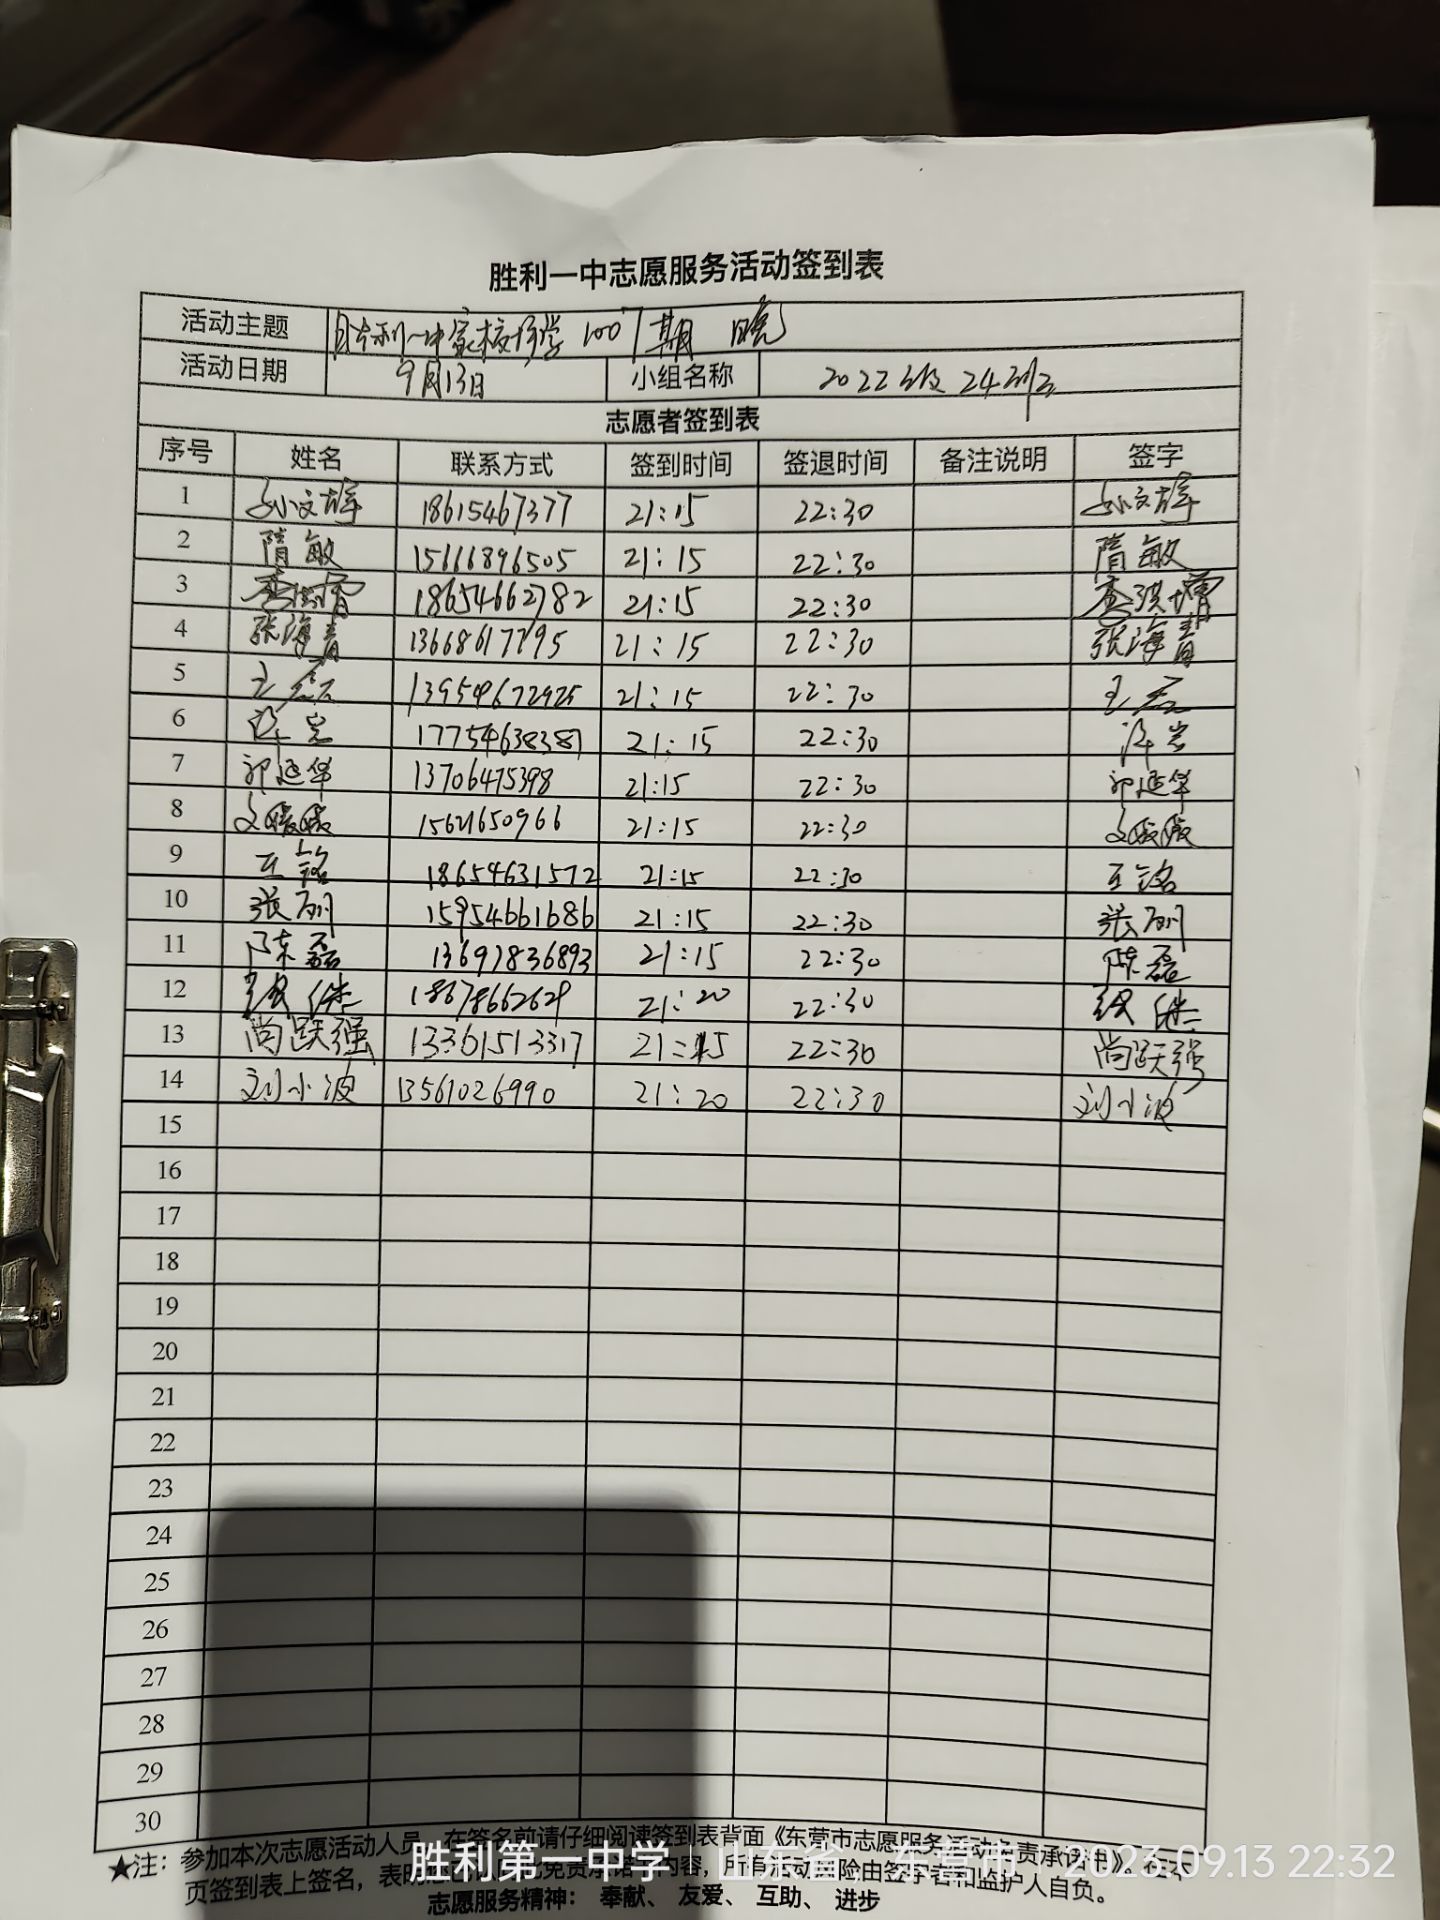 胜利一中志愿服务活动签到表
活动主题 胜利一中家校伴学 1007期 晚
活动日期 9月13日 小组名称 2022级24班
志愿者签到表
序号 姓名 联系方式 签到时间 签退时间 备注说明 签字
1 孙文 18615467377 21:15 22:30 孙文
2 隋敏 15666896505 21:15 22:30 隋敏
3 18654662782 21:15 22:30
4 张海青 13668617795 21:15 22:30 张海青
5 王 21:15 22:30 王
6 17754638387 21:15 22:30
7 郭延华 13706475398 21:15 22:30 郭延华
8 文媛媛 15621650966 21:15 22:30 文媛媛
9 王铭 18654631572 21:15 22:30 王铭
10 张丽 15954661686 21:15 22:30 张丽
11 陈磊 13697836893 21:15 22:30 陈磊
12 18678662629 21:20 22:30
13 尚跃强 13361513317 21:15 22:30 尚跃强
14 刘小波 13561026990 21:20 22:30 刘小波
15
16
17
18
19
20
21
22
23
24
25
26
27
28
29
30
★注：参加本次志愿活动人员，在签名前请仔细阅读签到表背面《东营市志愿服务活动免责承诺书》。在本
页签到表上签名，表明 免责承诺 内容，所有活动风险由签字者和监护人自负。
志愿服务精神：奉献、友爱、互助、进步
胜利第一中学 | 山东省，东营市 | 2023.09.13 22:32